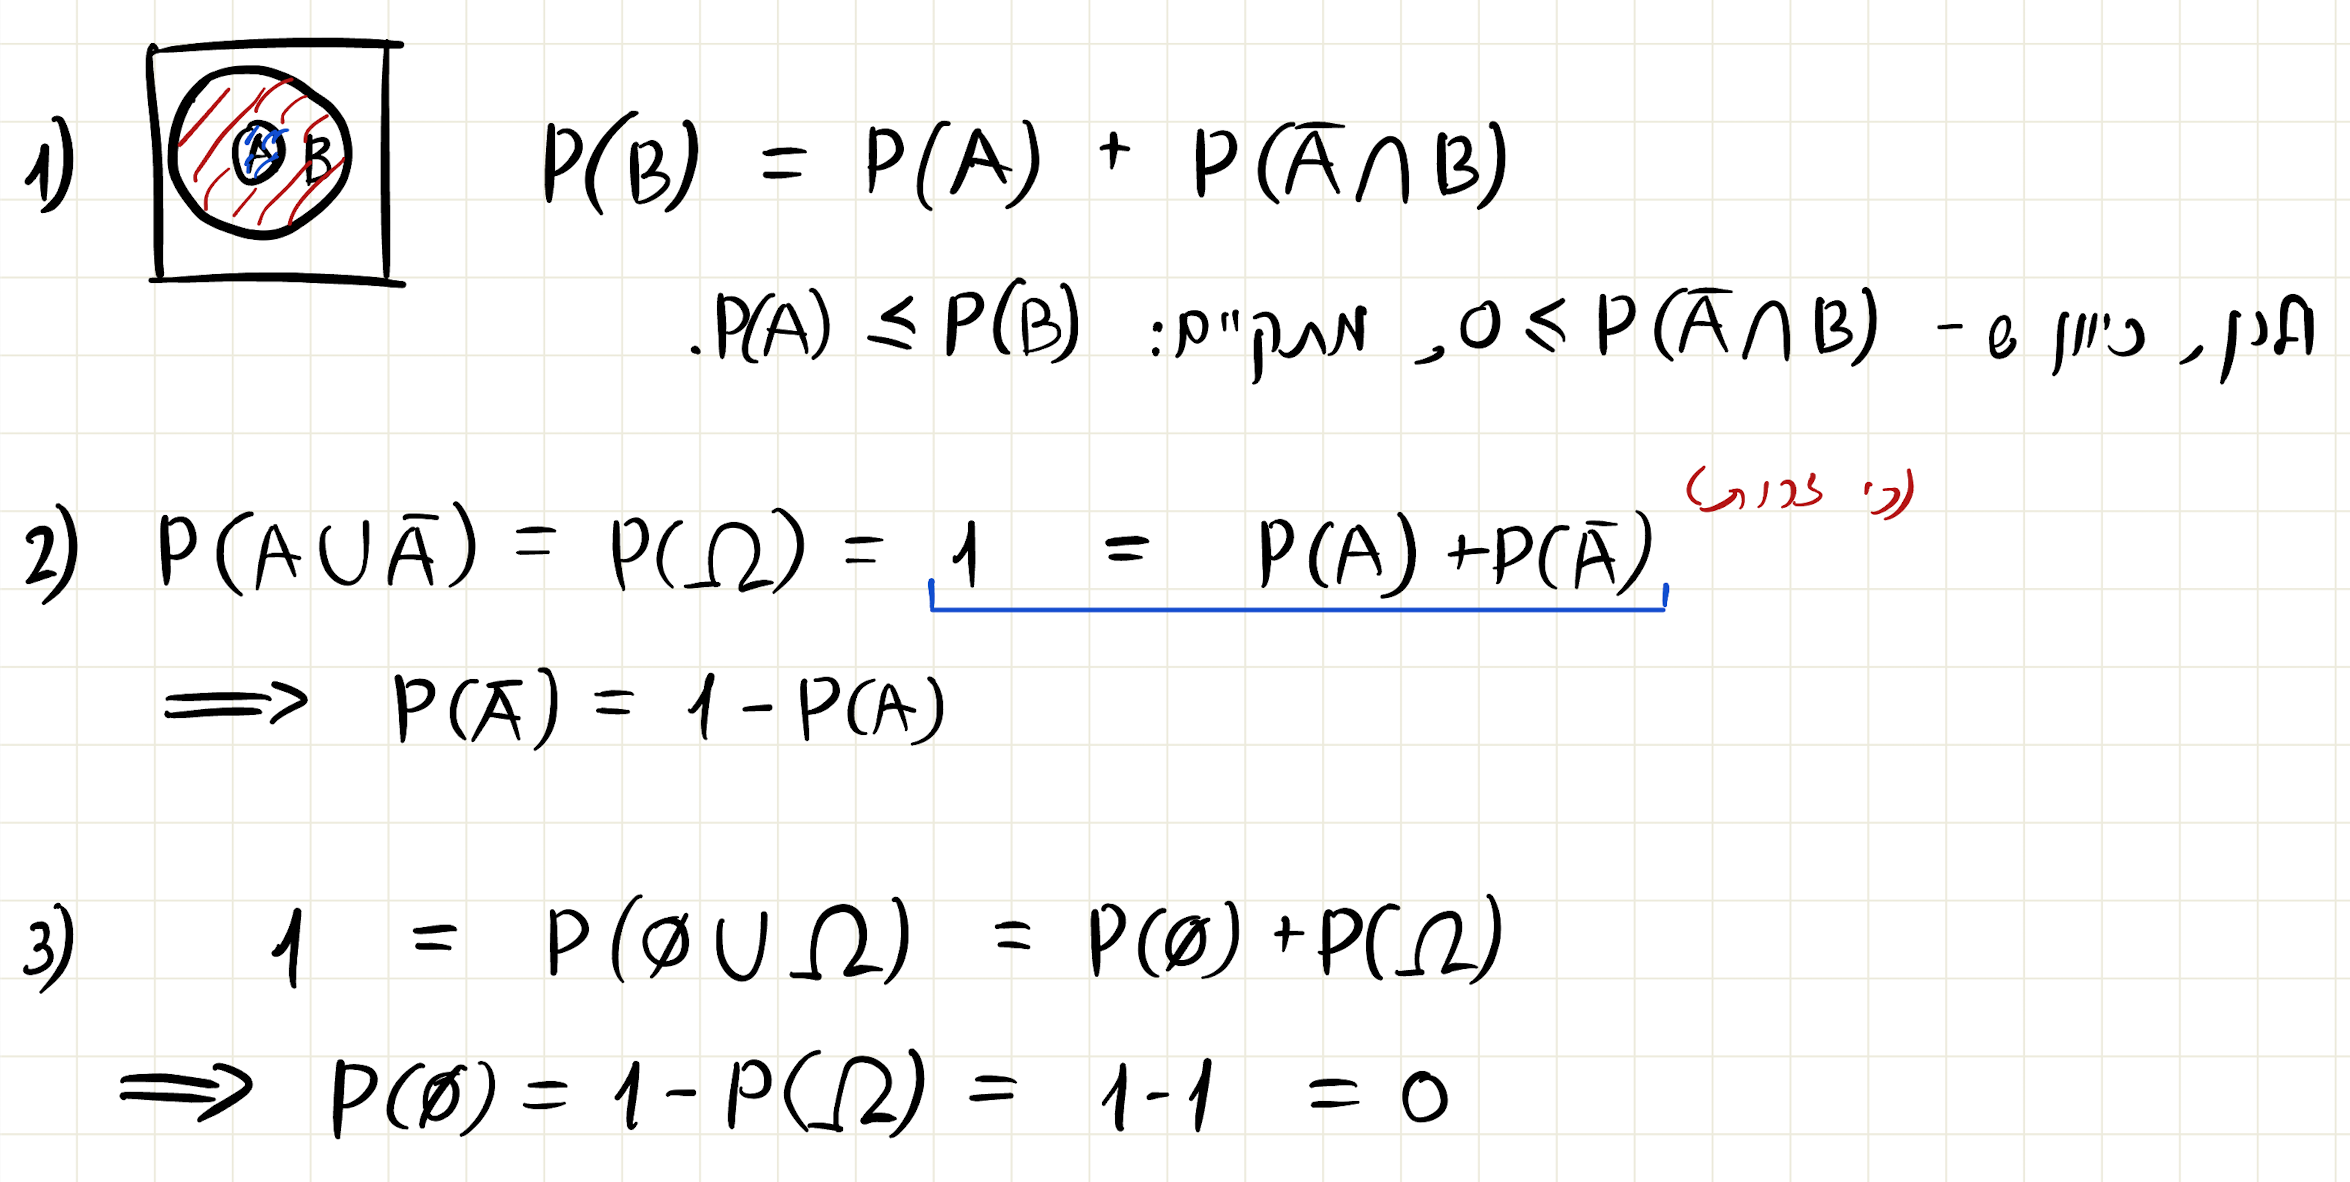 1) A B P(B) = P(A) + P(Ā∩B)
לכן, כיוון ש - 0 ≤ P(Ā∩B), מתקיים: P(A) ≤ P(B).
2) P(A∪Ā) = P(Ω) = 1 = P(A)+P(Ā) (כי זרות)
⟹ P(Ā) = 1-P(A)
3) 1 = P(∅∪Ω) = P(∅)+P(Ω)
⟹ P(∅) = 1-P(Ω) = 1-1 = 0